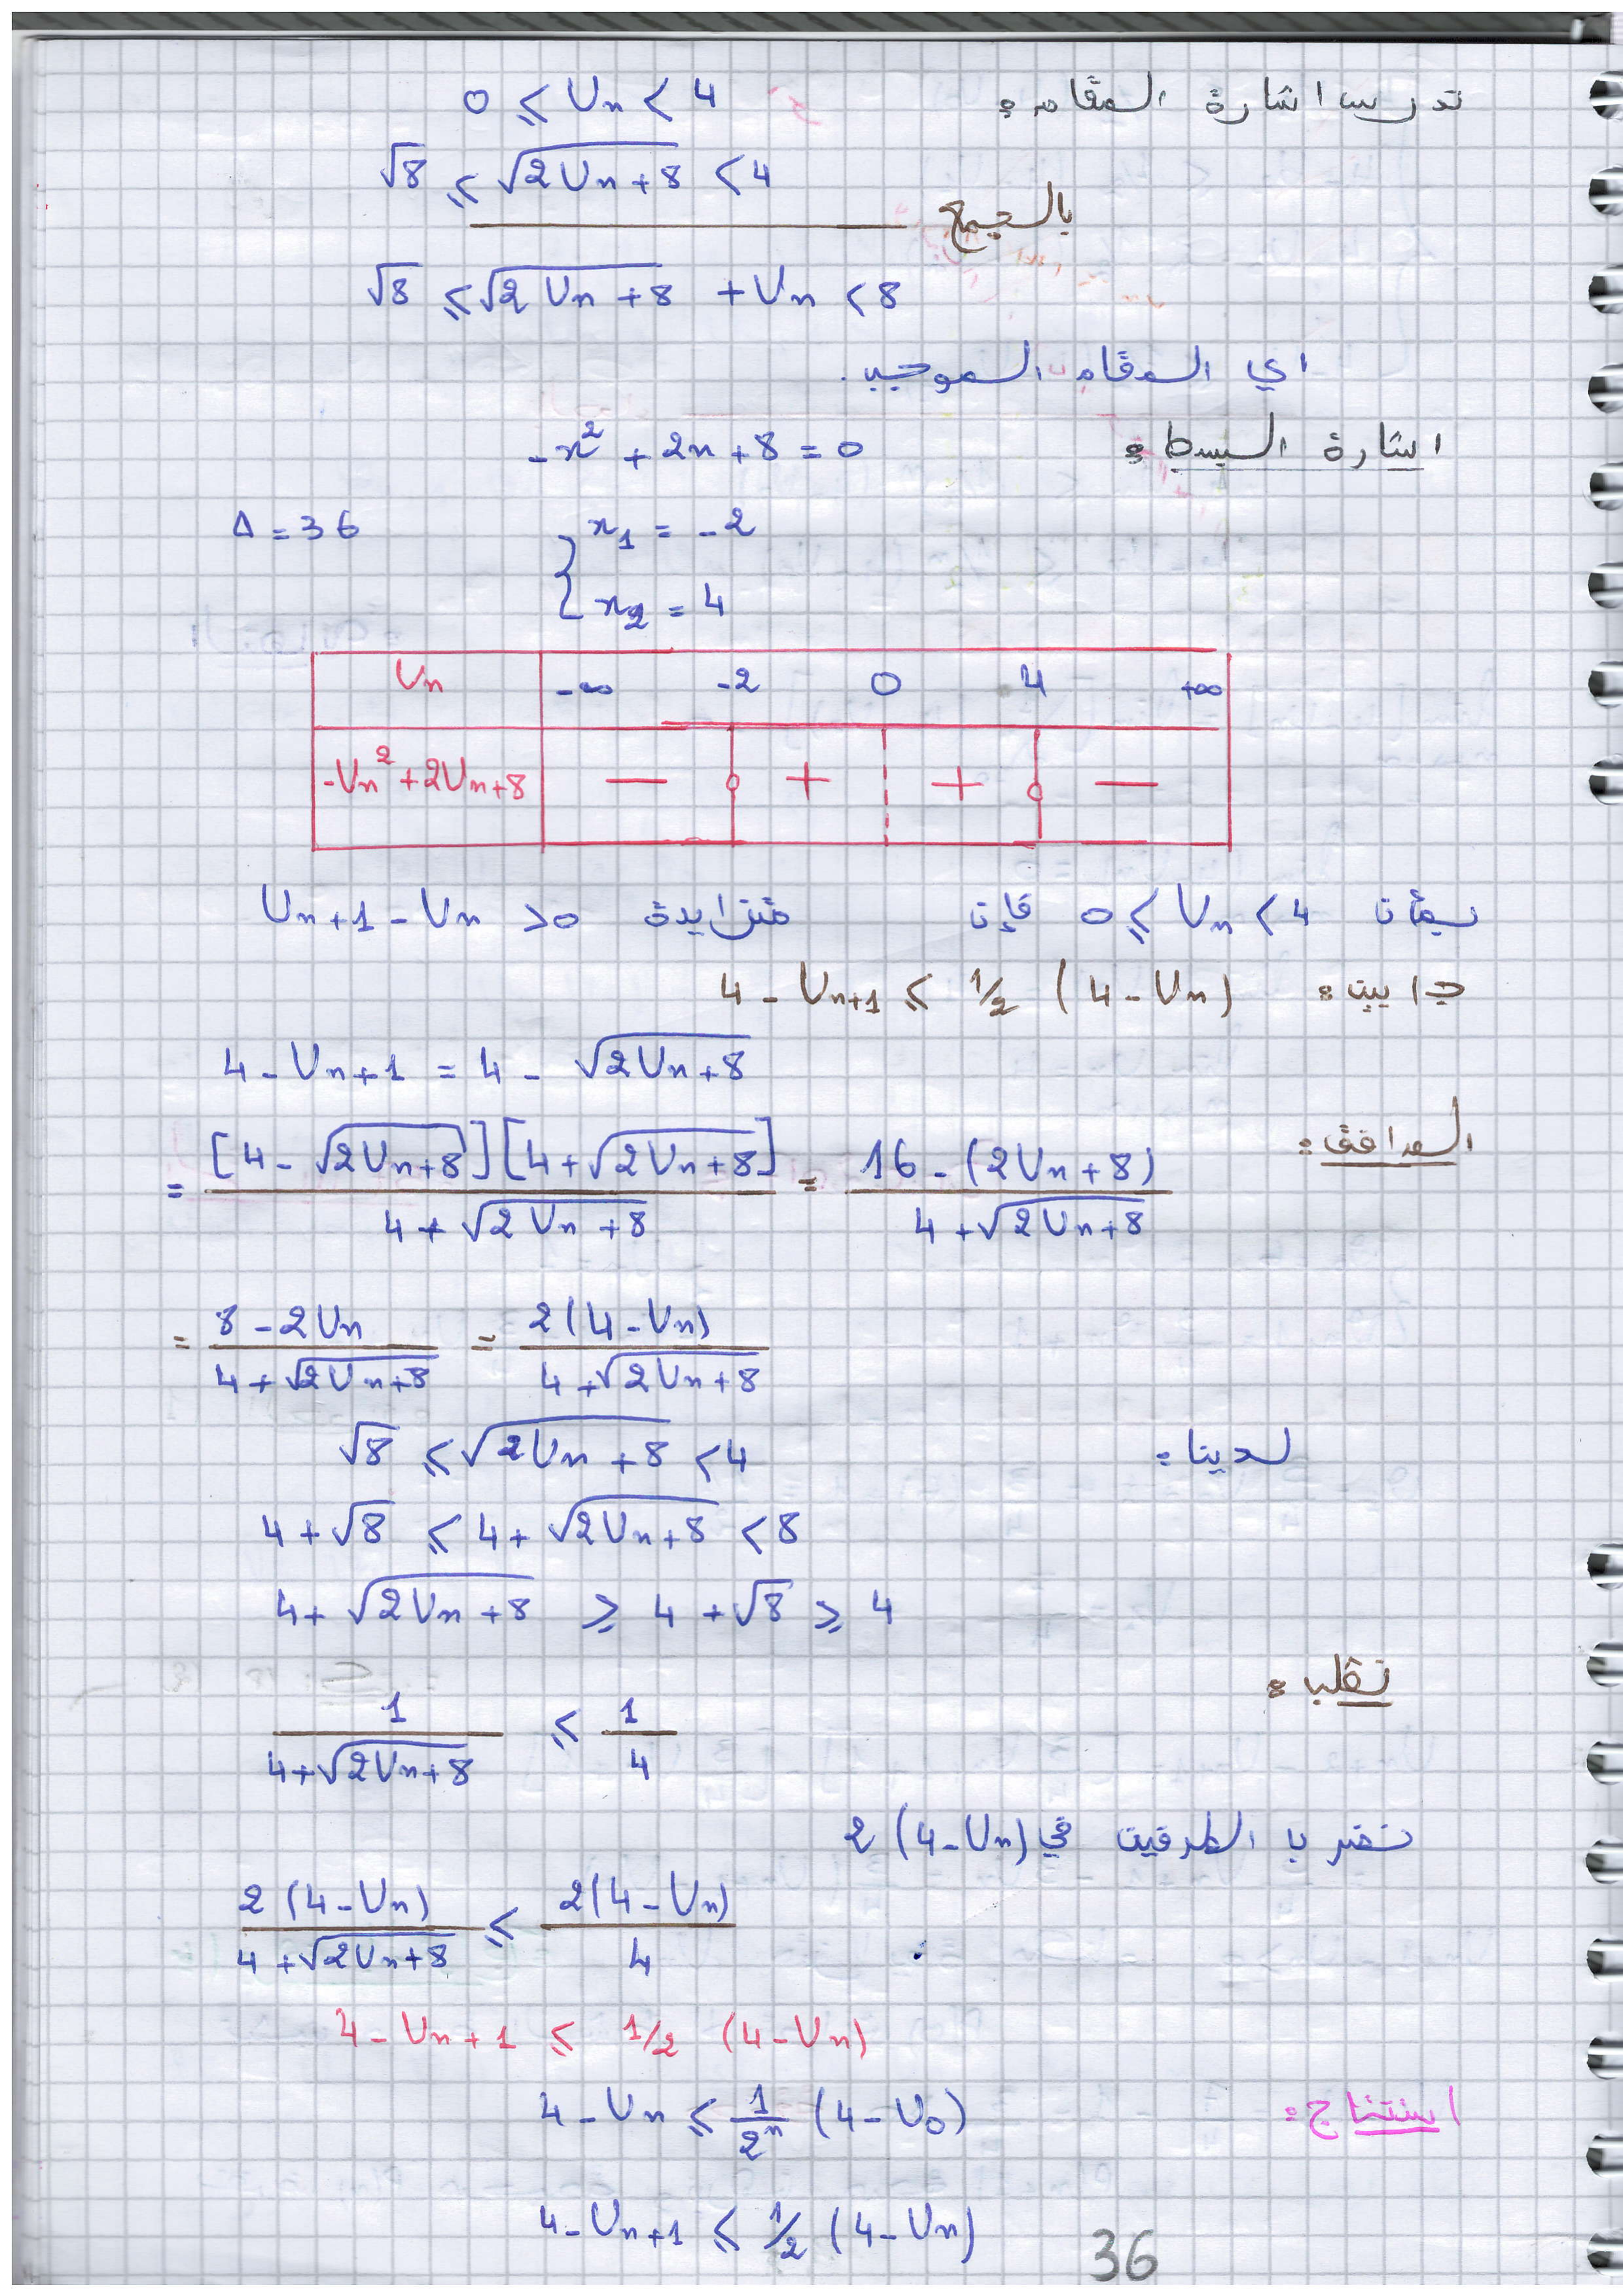 ندرس اشارة المقام: 0 ⩽ Un < 4
√8 ⩽ √(2Un+8) < 4
بالجمع
√8 ⩽ √(2Un+8) + Un < 8
اي المقام الموجب.
اشارة البسط: -x² + 2x + 8 = 0
Δ = 36 { x₁ = -2
x₂ = 4
Un -∞ -2 0 4 +∞
-Un² + 2Un + 8 − + + −
بمأن 0 ⩽ Un < 4 فإن Un+1 - Un > 0 متزايدة
ج ا يبن: 4 - Un+1 ⩽ 1/2 (4 - Un)
4 - Un+1 = 4 - √(2Un+8)
المرافق: = [4 - √(2Un+8)][4 + √(2Un+8)] / (4 + √(2Un+8)) = 16 - (2Un+8) / (4 + √(2Un+8))
= (8 - 2Un) / (4 + √(2Un+8)) = 2(4 - Un) / (4 + √(2Un+8))
لدينا: √8 ⩽ √(2Un+8) < 4
4 + √8 ⩽ 4 + √(2Un+8) < 8
4 + √(2Un+8) ⩾ 4 + √8 ⩾ 4
نقلب:
1 / (4 + √(2Un+8)) ⩽ 1/4
نضرب الطرفين في 2(4 - Un)
2(4 - Un) / (4 + √(2Un+8)) ⩽ 2(4 - Un) / 4
4 - Un+1 ⩽ 1/2 (4 - Un)
استنتاج: 4 - Un ⩽ 1/2ⁿ (4 - U0)
4 - Un+1 ⩽ 1/2 (4 - Un)
36